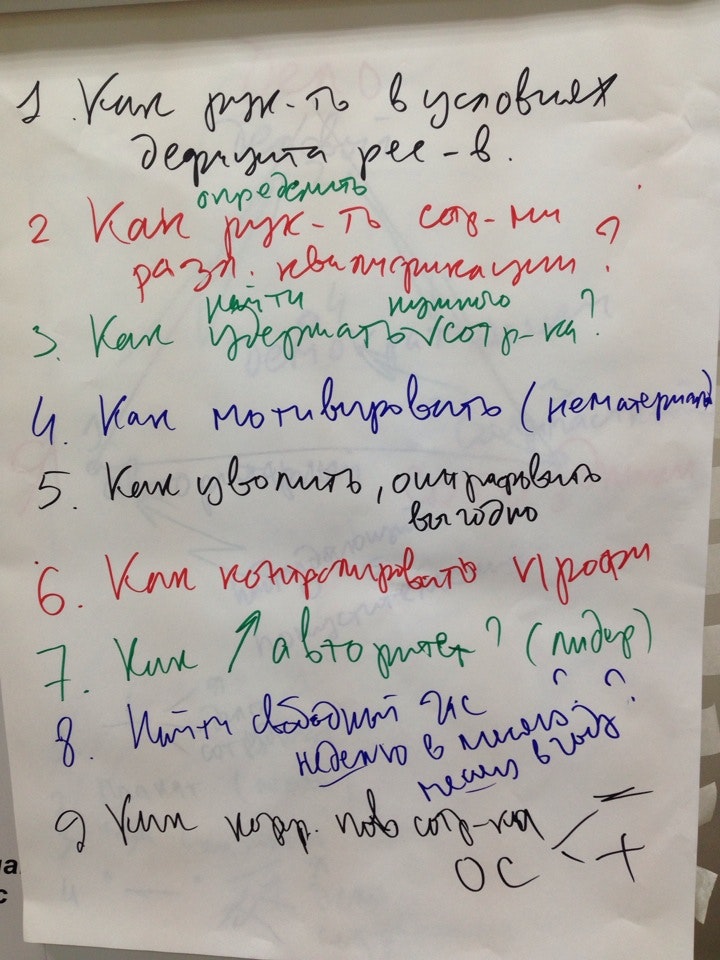 1. Как рук-ть в условиях
дефицита рес-в.
определить
2 Как рук-ть сотр-ми
разл. квалификации?
найти нужного
3. Как удержать√сотр-ка?
4. Как мотивировать (нематериально)
5. Как уволить, оштрафовать
выгодно
6. Как контролировать профи
7. Как ↑ авторитет? (лидер)
8. Найти свободный час
неделю в месяц?
месяц в году?
9 Как корр. пов сотр-ка
ОС < − +